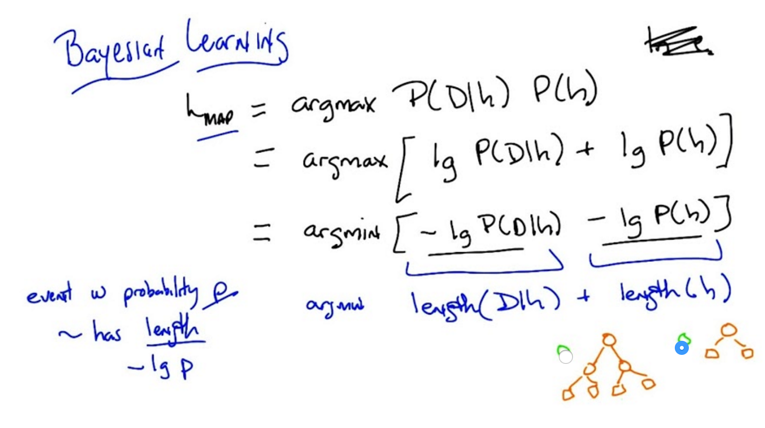 Bayesian Learning
h_MAP = argmax P(D|h) P(h)
= argmax [ lg P(D|h) + lg P(h) ]
= argmin [ - lg P(D|h) - lg P(h) ]
event w probability p
~ has length
- lg p
argmin length(D|h) + length(h)